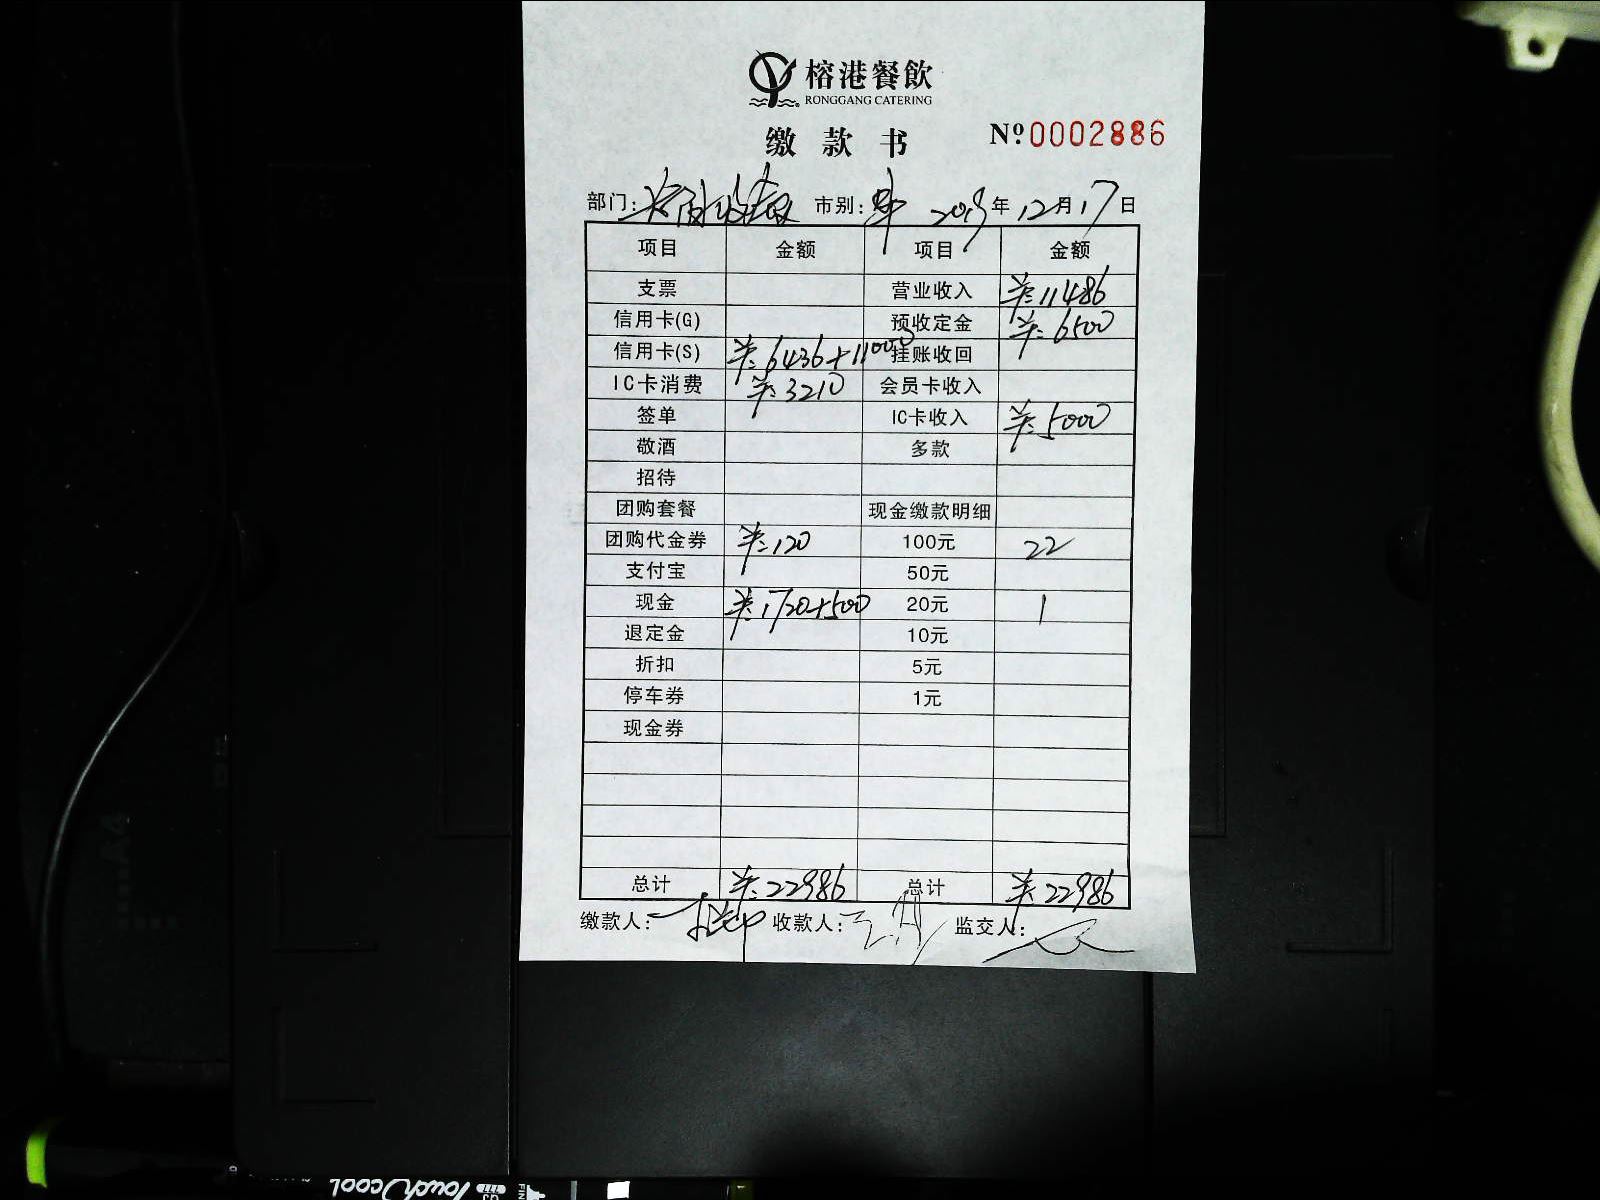 榕港餐飲
RONGGANG CATERING
缴款书 Nº0002886
部门: 市别: 2019年12月17日
项目 金额 项目 金额
支票 营业收入 ¥:11486
信用卡(G) 预收定金 ¥:6500
信用卡(S) ¥:6436+11000 挂账收回
IC卡消费 ¥:3210 会员卡收入
签单 IC卡收入 ¥:5000
敬酒 多款
招待
团购套餐 现金缴款明细
团购代金券 ¥:120 100元 22
支付宝 50元
现金 ¥:1720+500 20元 1
退定金 10元
折扣 5元
停车券 1元
现金券
总计 ¥:22986 总计 ¥:22986
缴款人: 收款人: 监交人:
Touch cool